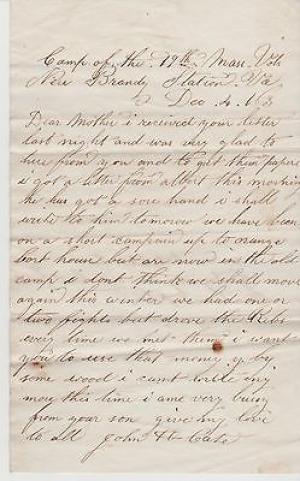 Camp of the 19th Mass Vols
Near Brandy Station Va
Dec 4 /63
Dear Mother i received your letter
last night and was very glad to
hire from you and to get them papers
i got a letter from albert this morning
he has got a sore hand i shall
write to him tomorow we have been
on a short campain up to orange
cort house but are now in the old
camp i dont think we shall move
again this winter we had one or
two fights but drove the Rebs
every time we met them i want
you to use that money
some wood i cant write any
more this time i ame very busy
from your son give my love
to all John H